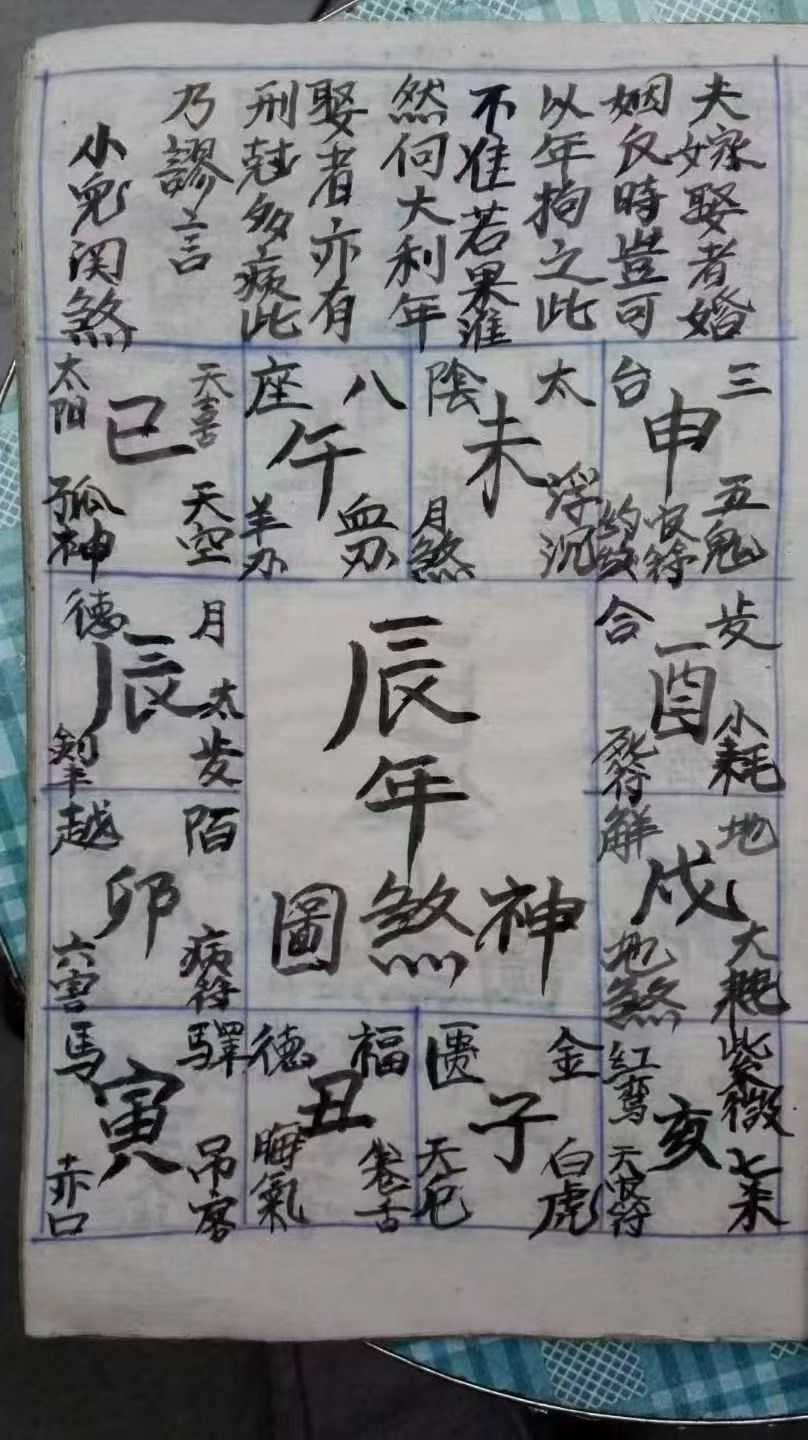 夫嫁娶者婚
姻及時豈可
以年拘之此
不准若果准
然何大利年
娶者亦有
刑尅多病此
乃謬言
小鬼関煞
三台
申
五鬼
太陰
未
浮沉
月煞
八座
午
血刃
羊刃
天喜
太阳
巳
天空
孤神
歩合
酉
小耗
死符
月德
辰
太歩
剑羊
辰年
神煞圖
地解
戌
大耗
地煞
陌越
卯
病符
六害
紫微
红鸾
亥
天官符
金匮
子
白虎
福德
丑
卷舌
晦氣
驛馬
寅
吊客
赤口